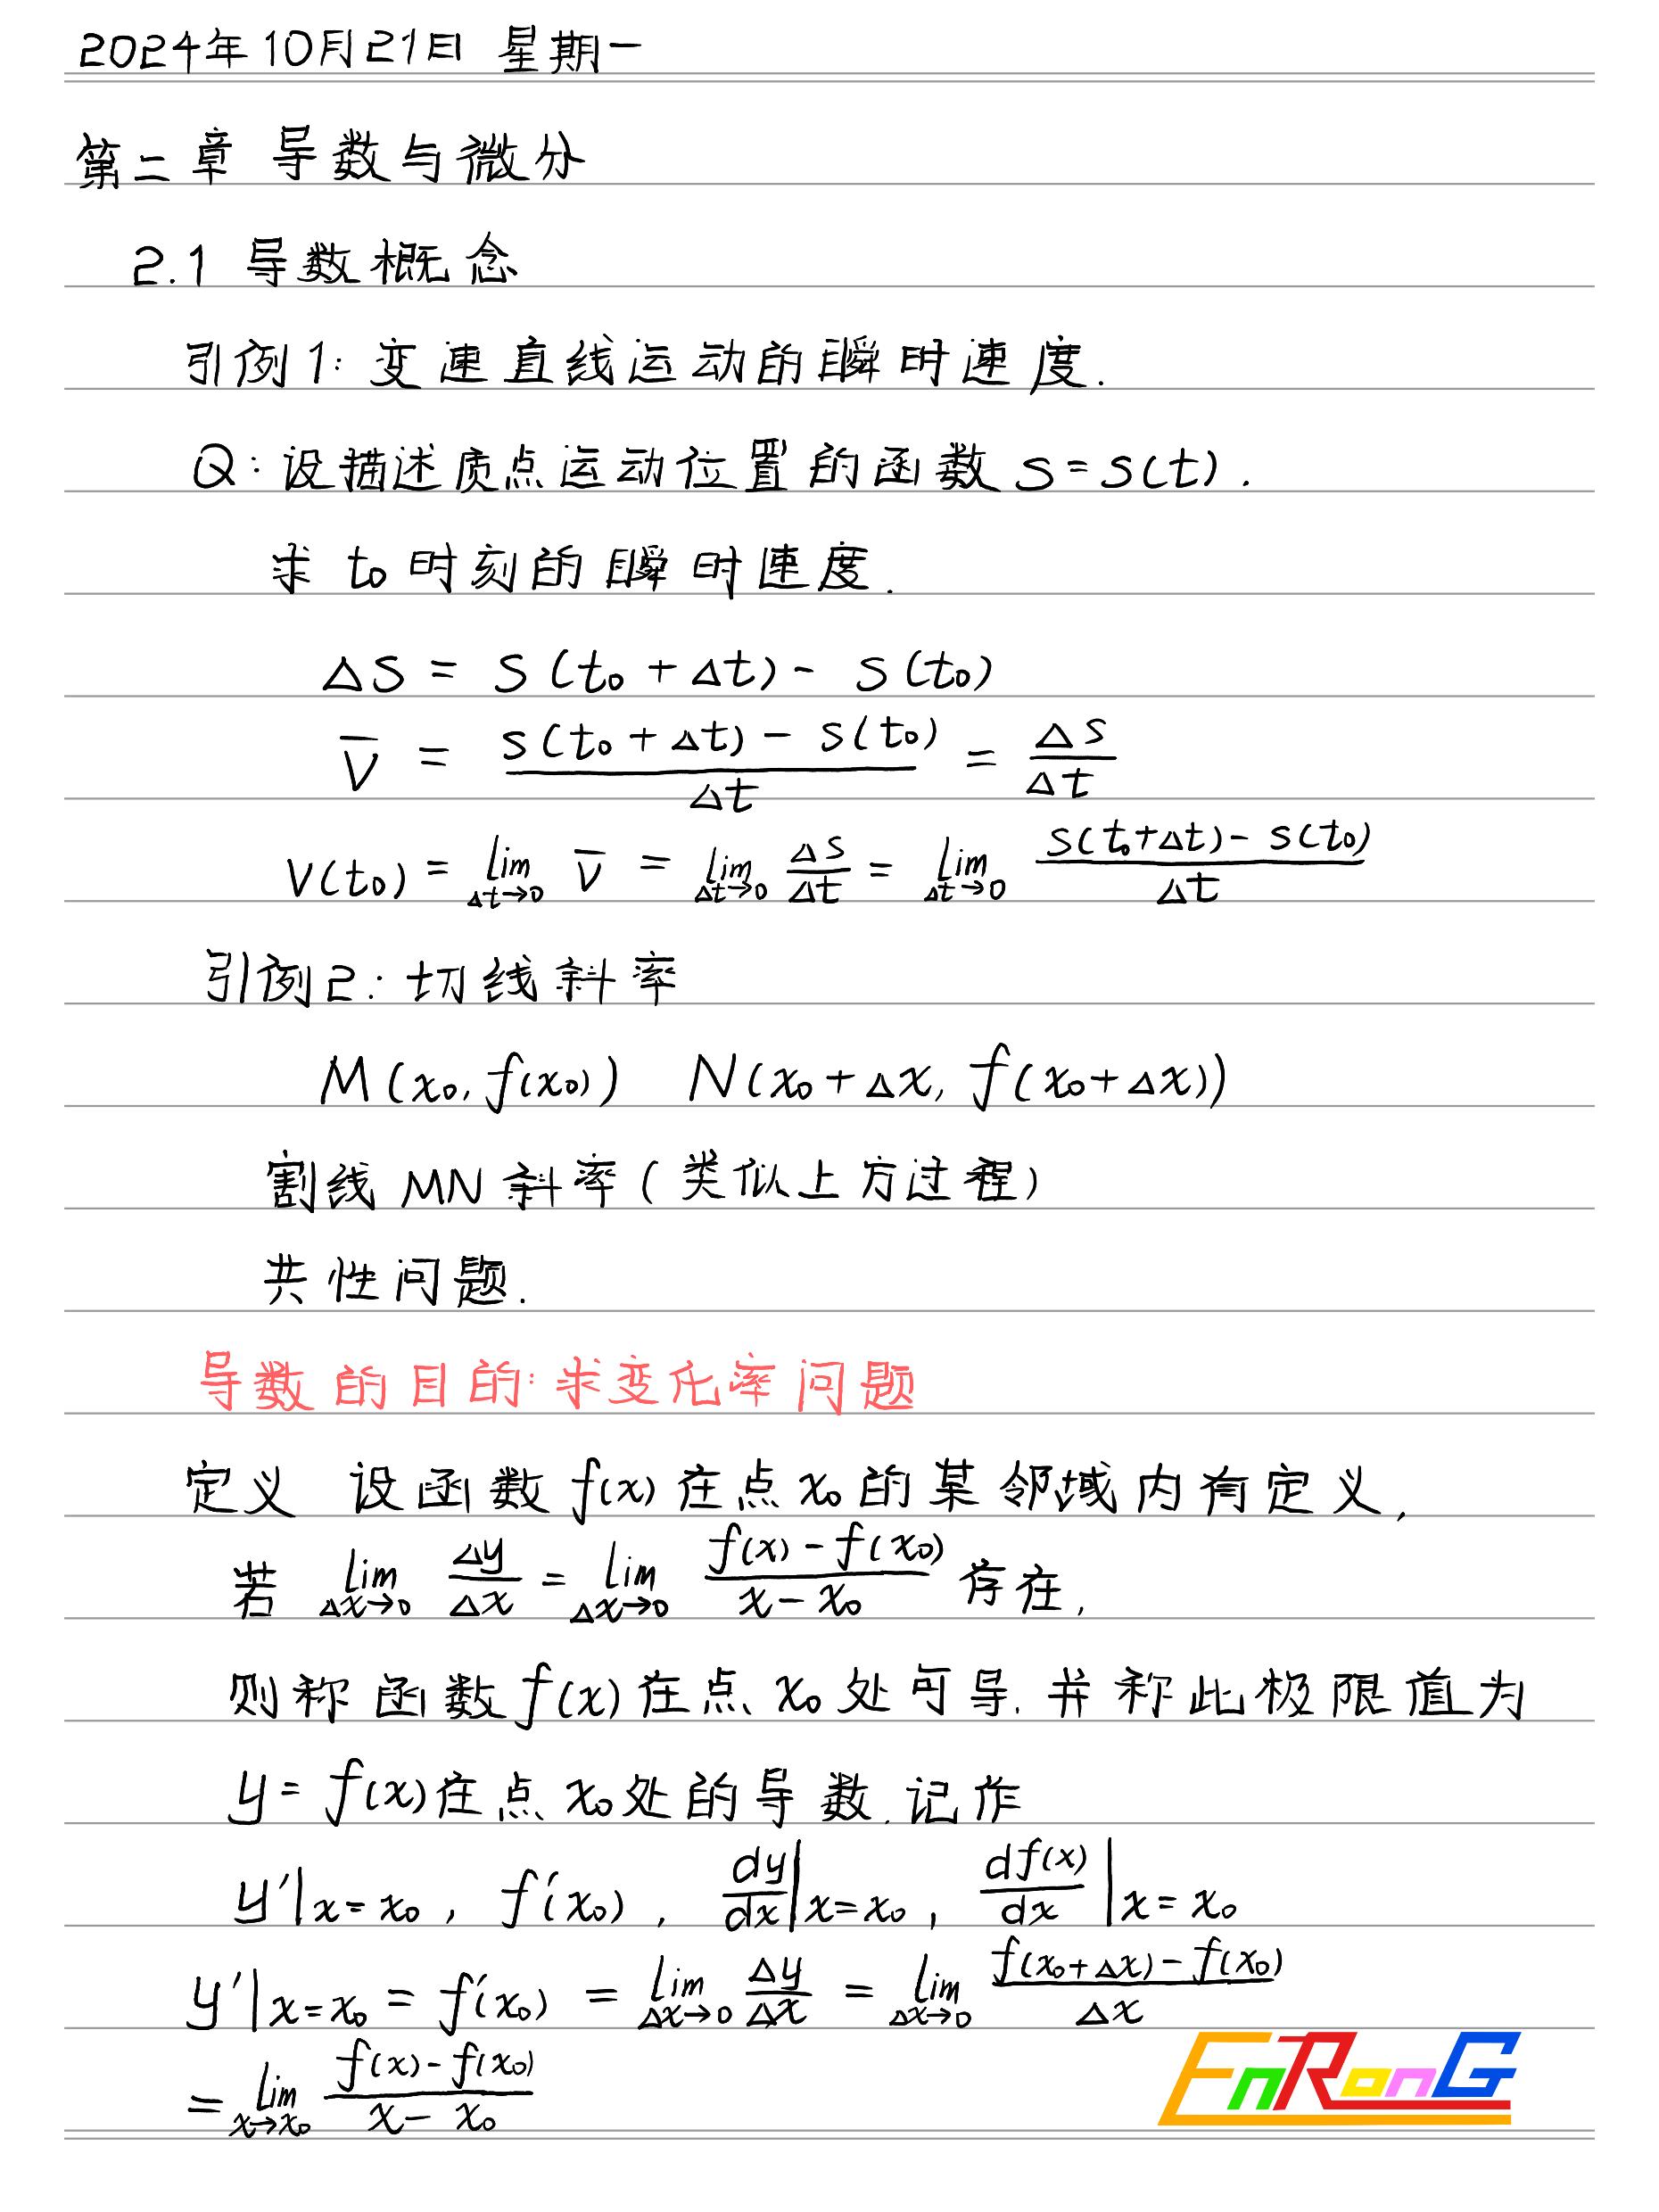 2024年10月21日 星期一
第二章 导数与微分
2.1 导数概念
引例1: 变速直线运动的瞬时速度.
Q: 设描述质点运动位置的函数 s = s(t).
求 t₀ 时刻的瞬时速度.
Δs = s(t₀ + Δt) - s(t₀)
v̄ = (s(t₀ + Δt) - s(t₀))/Δt = Δs/Δt
v(t₀) = lim_{Δt→0} v̄ = lim_{Δt→0} Δs/Δt = lim_{Δt→0} (s(t₀+Δt) - s(t₀))/Δt
引例2: 切线斜率
M(x₀, f(x₀)) N(x₀ + Δx, f(x₀ + Δx))
割线 MN 斜率 (类似上方过程)
共性问题.
导数的目的: 求变化率问题
定义 设函数 f(x) 在点 x₀ 的某邻域内有定义,
若 lim_{Δx→0} Δy/Δx = lim_{Δx→0} (f(x) - f(x₀))/(x - x₀) 存在,
则称函数 f(x) 在点 x₀ 处可导. 并称此极限值为
y = f(x) 在点 x₀ 处的导数. 记作
y'|x=x₀ , f'(x₀) , dy/dx|x=x₀ , df(x)/dx|x=x₀
y'|x=x₀ = f'(x₀) = lim_{Δx→0} Δy/Δx = lim_{Δx→0} (f(x₀+Δx) - f(x₀))/Δx
= lim_{x→x₀} (f(x) - f(x₀))/(x - x₀)
EnRonG